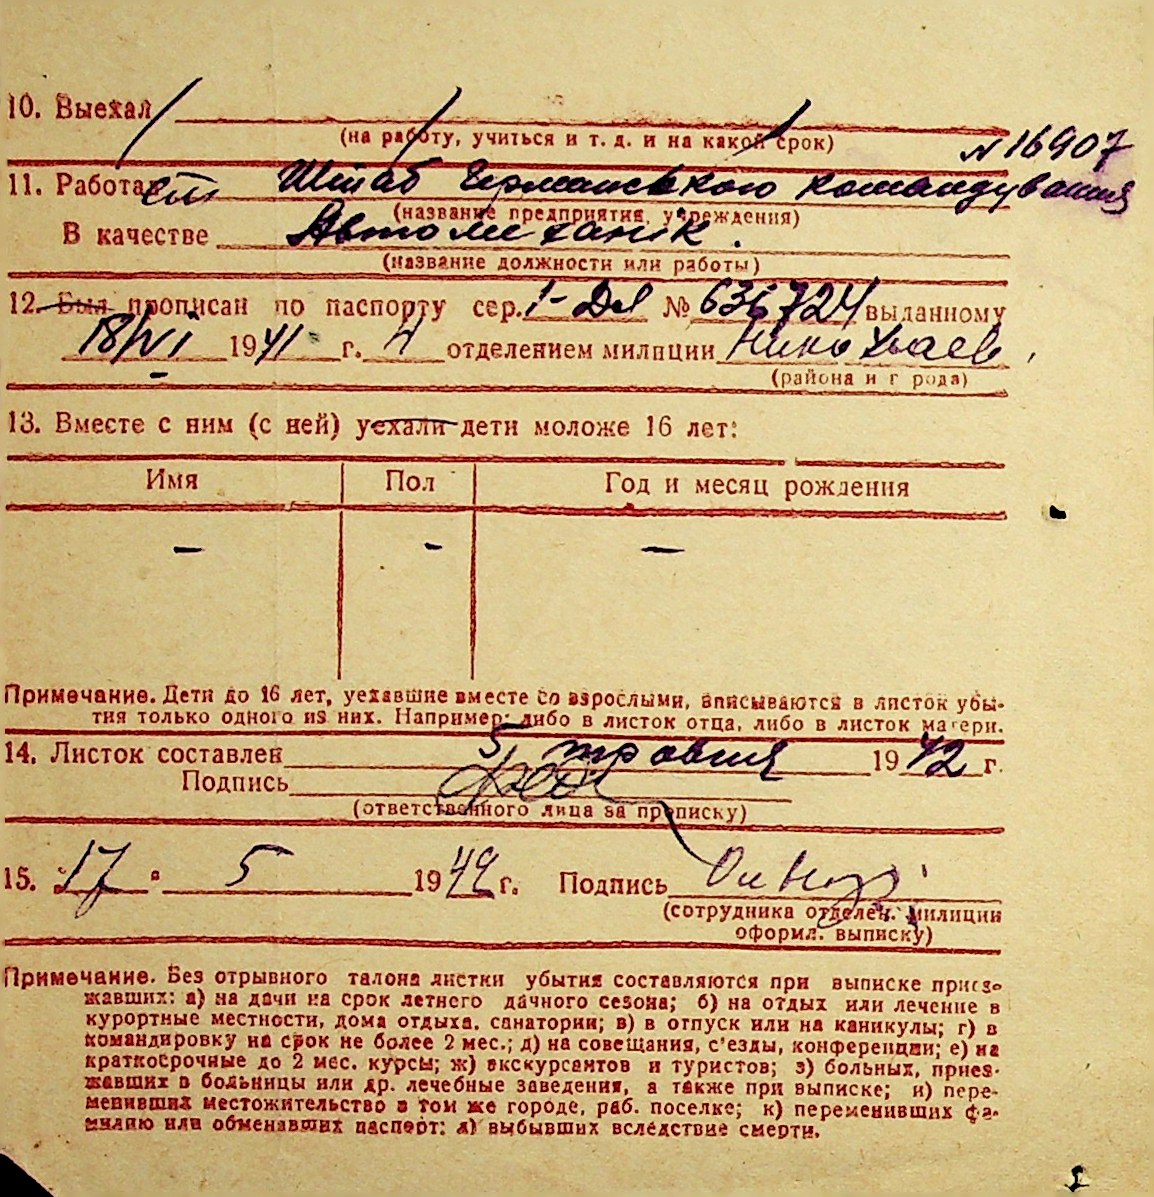 10. Выехал
(на работу, учиться и т. д. и на какой срок)
№ 16907
11. Работает Штаб Германського командування
(название предприятия, учреждения)
В качестве Автомиханік.
(название должности или работы)
12. Был прописан по паспорту сер. 1-ДЯ № 636724 выданному
18/VI 1941 г. 4 отделением милиции Николаев
(района и г рода)
13. Вместе с ним (с ней) уехали дети моложе 16 лет:
Имя Пол Год и месяц рождения
— — —
Примечание. Дети до 16 лет, уехавшие вместе со взрослыми, вписываются в листок убы-
тия только одного из них. Например: либо в листок отца, либо в листок матери.
14. Листок составлен 5 травня 1942 г.
Подпись
(ответственного лица за прописку)
15. 17 " 5 1942 г. Подпись
(сотрудника отделен. милиции
оформл. выписку)
Примечание. Без отрывного талона листки убытия составляются при выписке приез-
жавших: а) на дачи на срок летнего дачного сезона; б) на отдых или лечение в
курортные местности, дома отдыха, санатории; в) в отпуск или на каникулы; г) в
командировку на срок не более 2 мес.; д) на совещания, с'езды, конференции; е) на
краткосрочные до 2 мес. курсы; ж) экскурсантов и туристов; з) больных, приез-
жавших в больницы или др. лечебные заведения, а также при выписке; и) пере-
менивших местожительство в том же городе, раб. поселке; к) переменивших фа-
милию или обменявших паспорт; л) выбывших вследствие смерти.